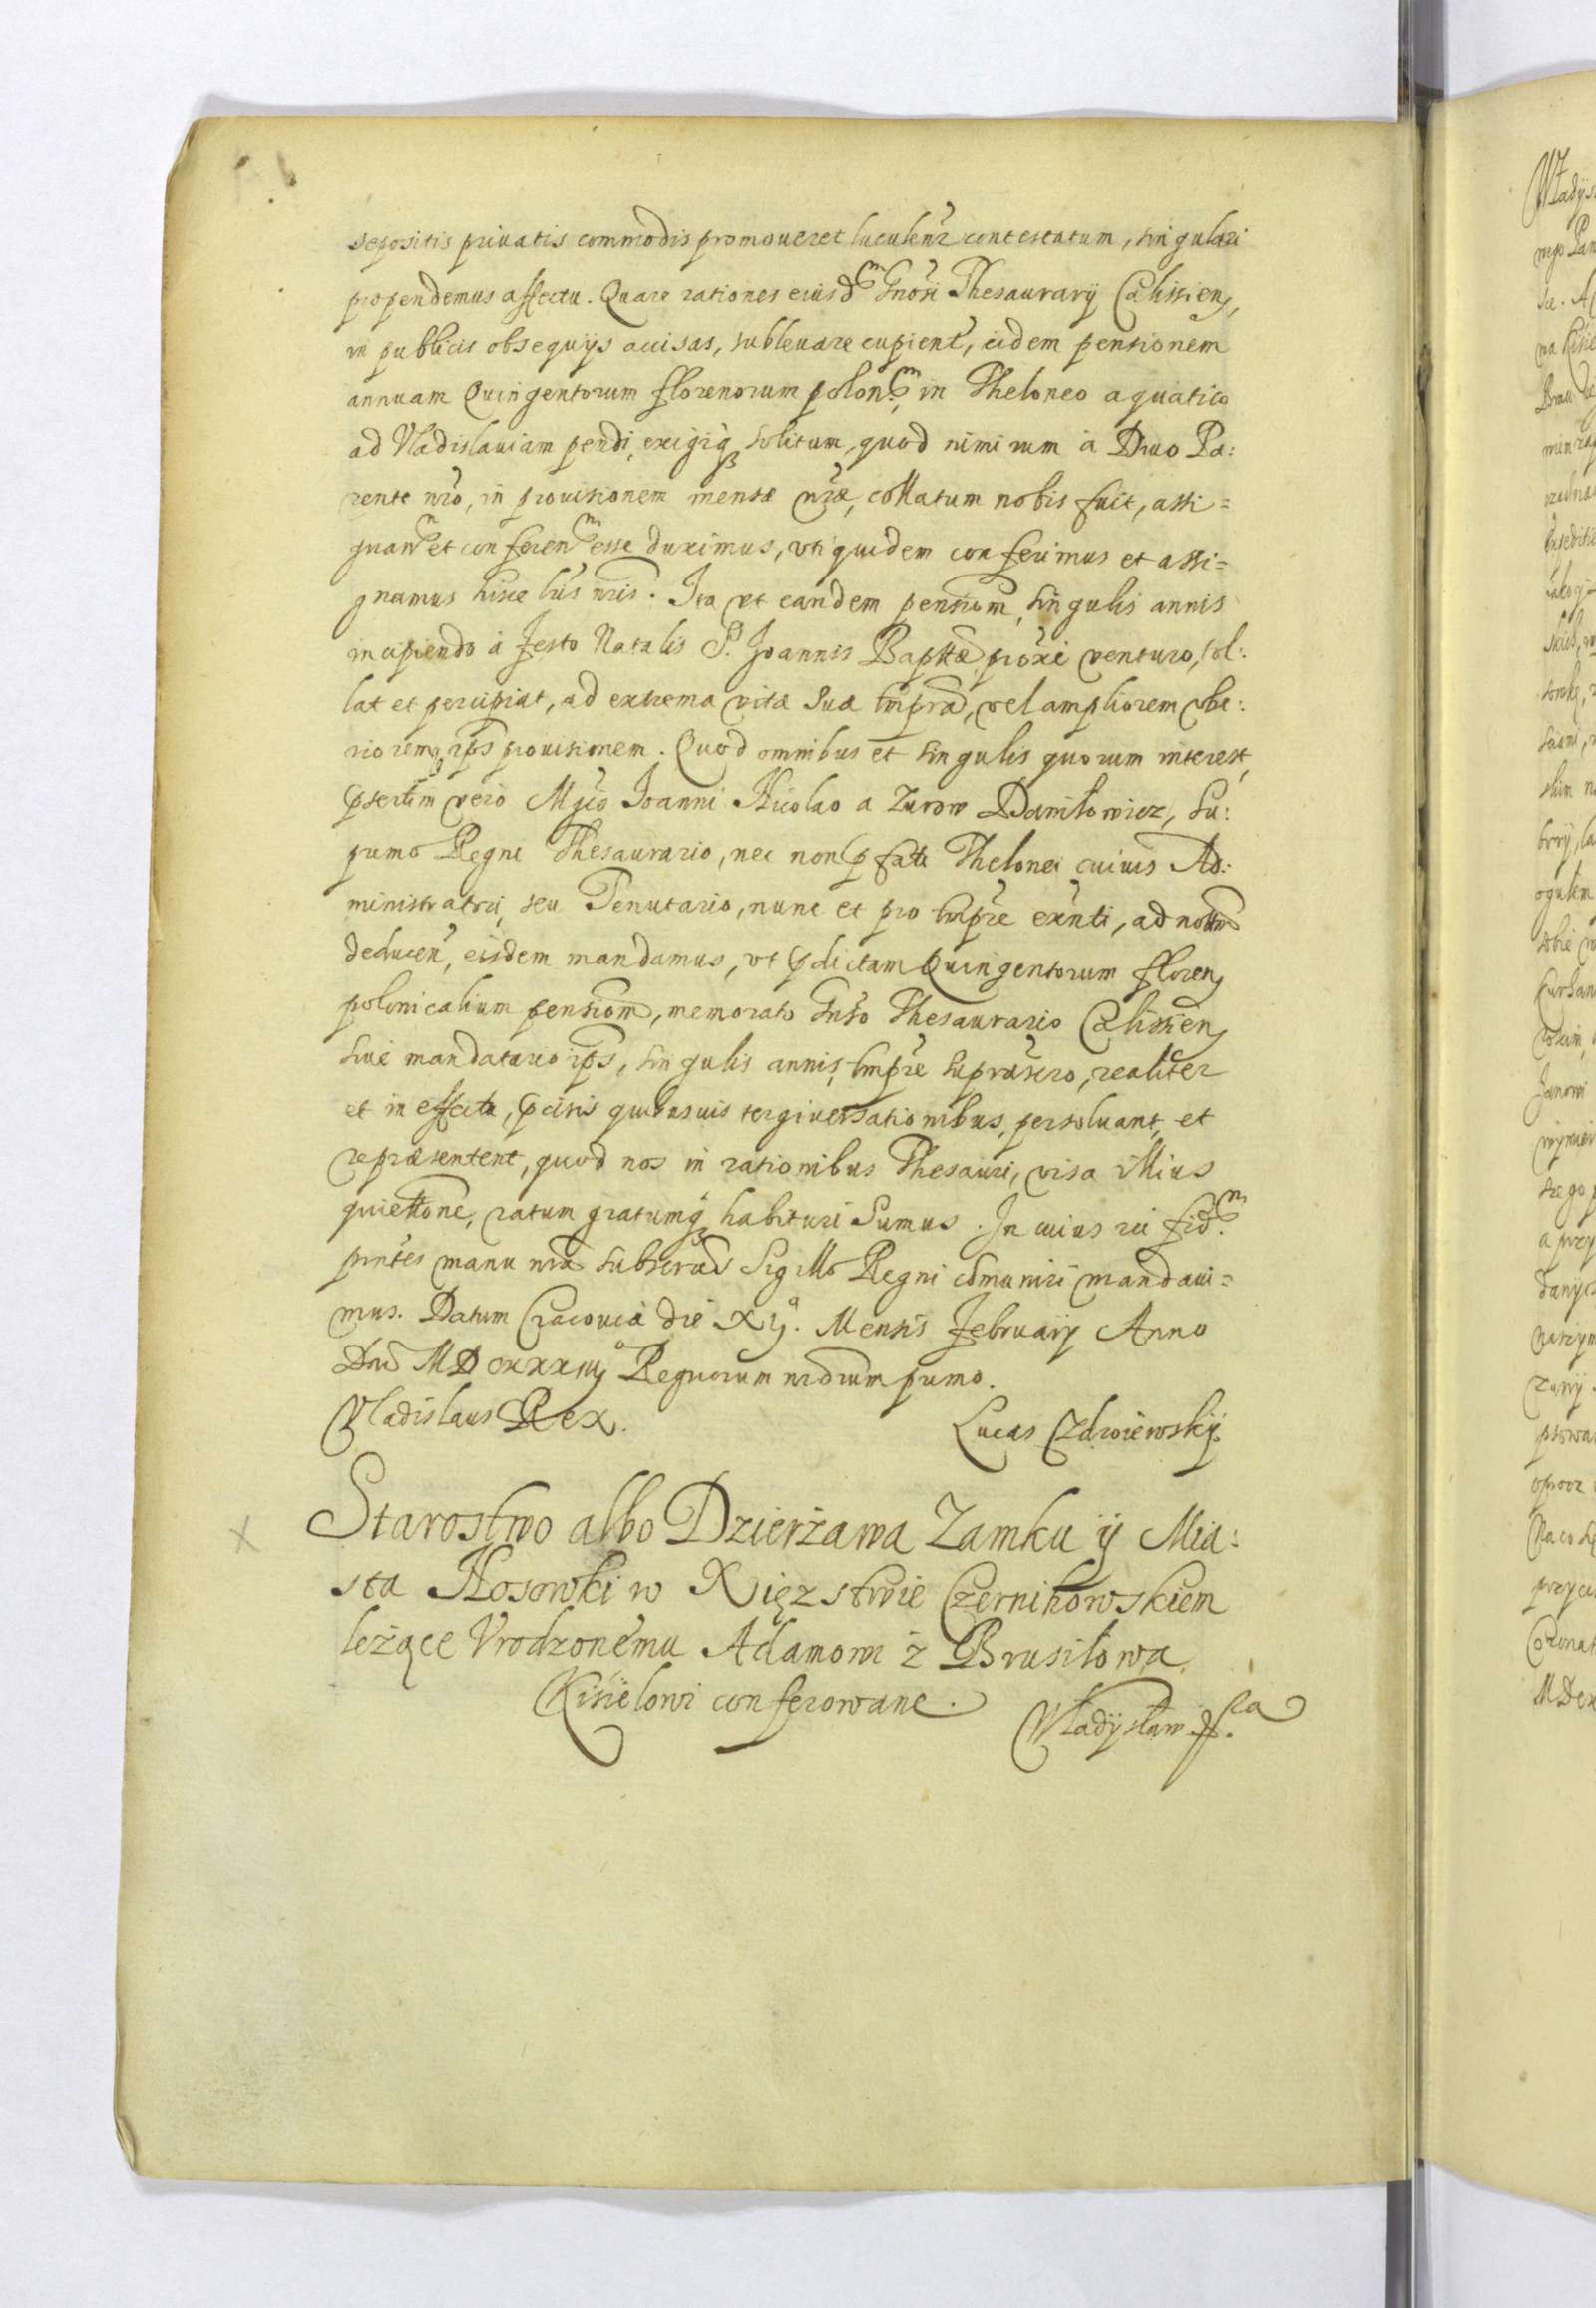 sepositis priuatis commodis promoueret luculentr contestatum, singulari
propendemus affectu. Quare rationes eiusdm Gnosi Thesaurarij Calissien,
in publicis obsequijs accisas, subleuare cupient, eidem pensionem
annuam Quingentorum florenorum polon: in Theloneo aquatico
ad Vladislauiam pendi, exigiq solitum, quod nimirum à Diuo Pa:
rente nro, in prouisionem mensæ nræ, collatum nobis fuit, assi=
gnanm et conferenm esse duximus, vti quidem conferimus et assi=
gnamus hisce lris nris. Ita vt eandem pensionm, singulis annis
incipiendo à festo Natalis S. Joannis Baptæ proxe venturo, tol:
lat et percipiat, ad extrema vitæ suæ tmpra, vel ampliorem vbe:
rioremq ips prouisionem. Quod omnibus et singulis quorum interest,
psertim vero Mgco Joanni Nicolao a Zurow Daniłowicz, Su:
pmo Regni Thesaurario, nec non pfati Thelonei cuiuis Ad:
ministratri, seu Tenutario, nunc et pro tmpre exnti, ad notm
deducen, eisdem mandamus, vt pdictam Quingentorum floren
polonicalium pensionm, memorato Gnso Thesaurario Calissien
siue mandatario ips, singulis annis, tmpre suprascro, realiter
et in effectu, pcisis quibusuis tergiuersationibus, persoluant, et
repræsentent, quod nos in rationibus Thesauri, visa illius
quiettone, ratum gratumq habituri sumus. In cuius rei fidm.
pntes manu nra subscras Sigillo Regni cõmuniri mandaui=
mus. Datum Cracouiæ die XIJa. Mensis Februarij Anno
Dni MDCXXXIIJo Regnorum nrorum pumo.
Vladislaus Rex. Lucas Czdrowewskij.
Starostwo albo Dzierżawa Zamku ÿ Mia:
sta Nosowki w Xięzstwie Czernihowskiem
leżące Vrodzonému Adamowi z Brusiłowa
Kisielowi conferowane. Władysław &ca.